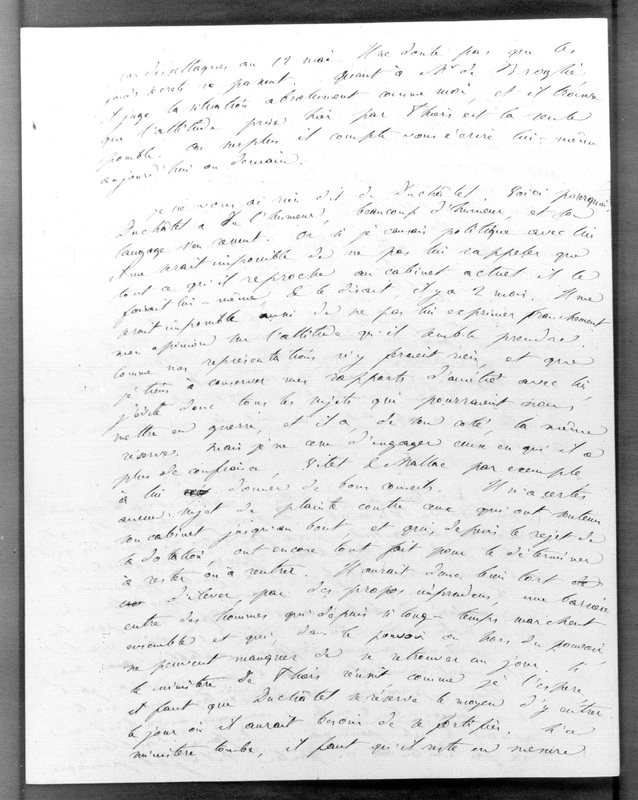 des attaques au 12 mai. Il ne doute pas que les
fonds secrets ne passent. Quant à Mr de Broglie,
il juge la situation absolument comme moi, et il trouve
que l'attitude prise hier par Thiers est la seule
possible. Au surplus il compte vous écrire lui-même
aujourd'hui ou demain.
je ne vous ai rien dit de Duchâtel. Voici pourquoi.
Duchâtel a de l'humeur, beaucoup d'humeur, et son
langage s'en ressent. Or si je causais politique avec lui
il me serait impossible de ne pas lui rappeler que
tout ce qu'il reproche au cabinet actuel il le
faisait lui-même, & le disait, il y a 2 mois. Il me
serait impossible aussi de ne pas lui exprimer franchement
mon opinion sur l'attitude qu'il semble prendre.
Comme nos représentations n'y feraient rien, et que
je tiens à conserver mes rapports d'amitié avec lui,
j'évite donc tous les sujets qui pourraient nous
mettre en guerre, et il a, de son coté, la même
réserve. Mais je ne cesse d'engager ceux en qui il a
plus de confiance, Vitet & Mallac par exemple
à lui donner de bons conseils. Il n'a certes
aucun sujet de plainte contre ceux qui ont soutenu
son cabinet jusqu'au bout, et qui, depuis le rejet de
la dotation, ont encore tout fait pour le déterminer
à rester ou à rentrer. Il aurait donc bien tort
d'élever, par des propos imprudens, une barrière
entre des hommes qui depuis si long-temps marchent
ensemble et qui, dans le pouvoir ou hors du pouvoir,
ne peuvent manquer de se retrouver un jour. Si
le ministère de Thiers réussit comme je l'espère
il faut que Duchâtel se réserve le moyen d'y entrer
le jour où il aurait besoin de se fortifier. Si ce
ministère tombe, il faut qu'il reste en mesure